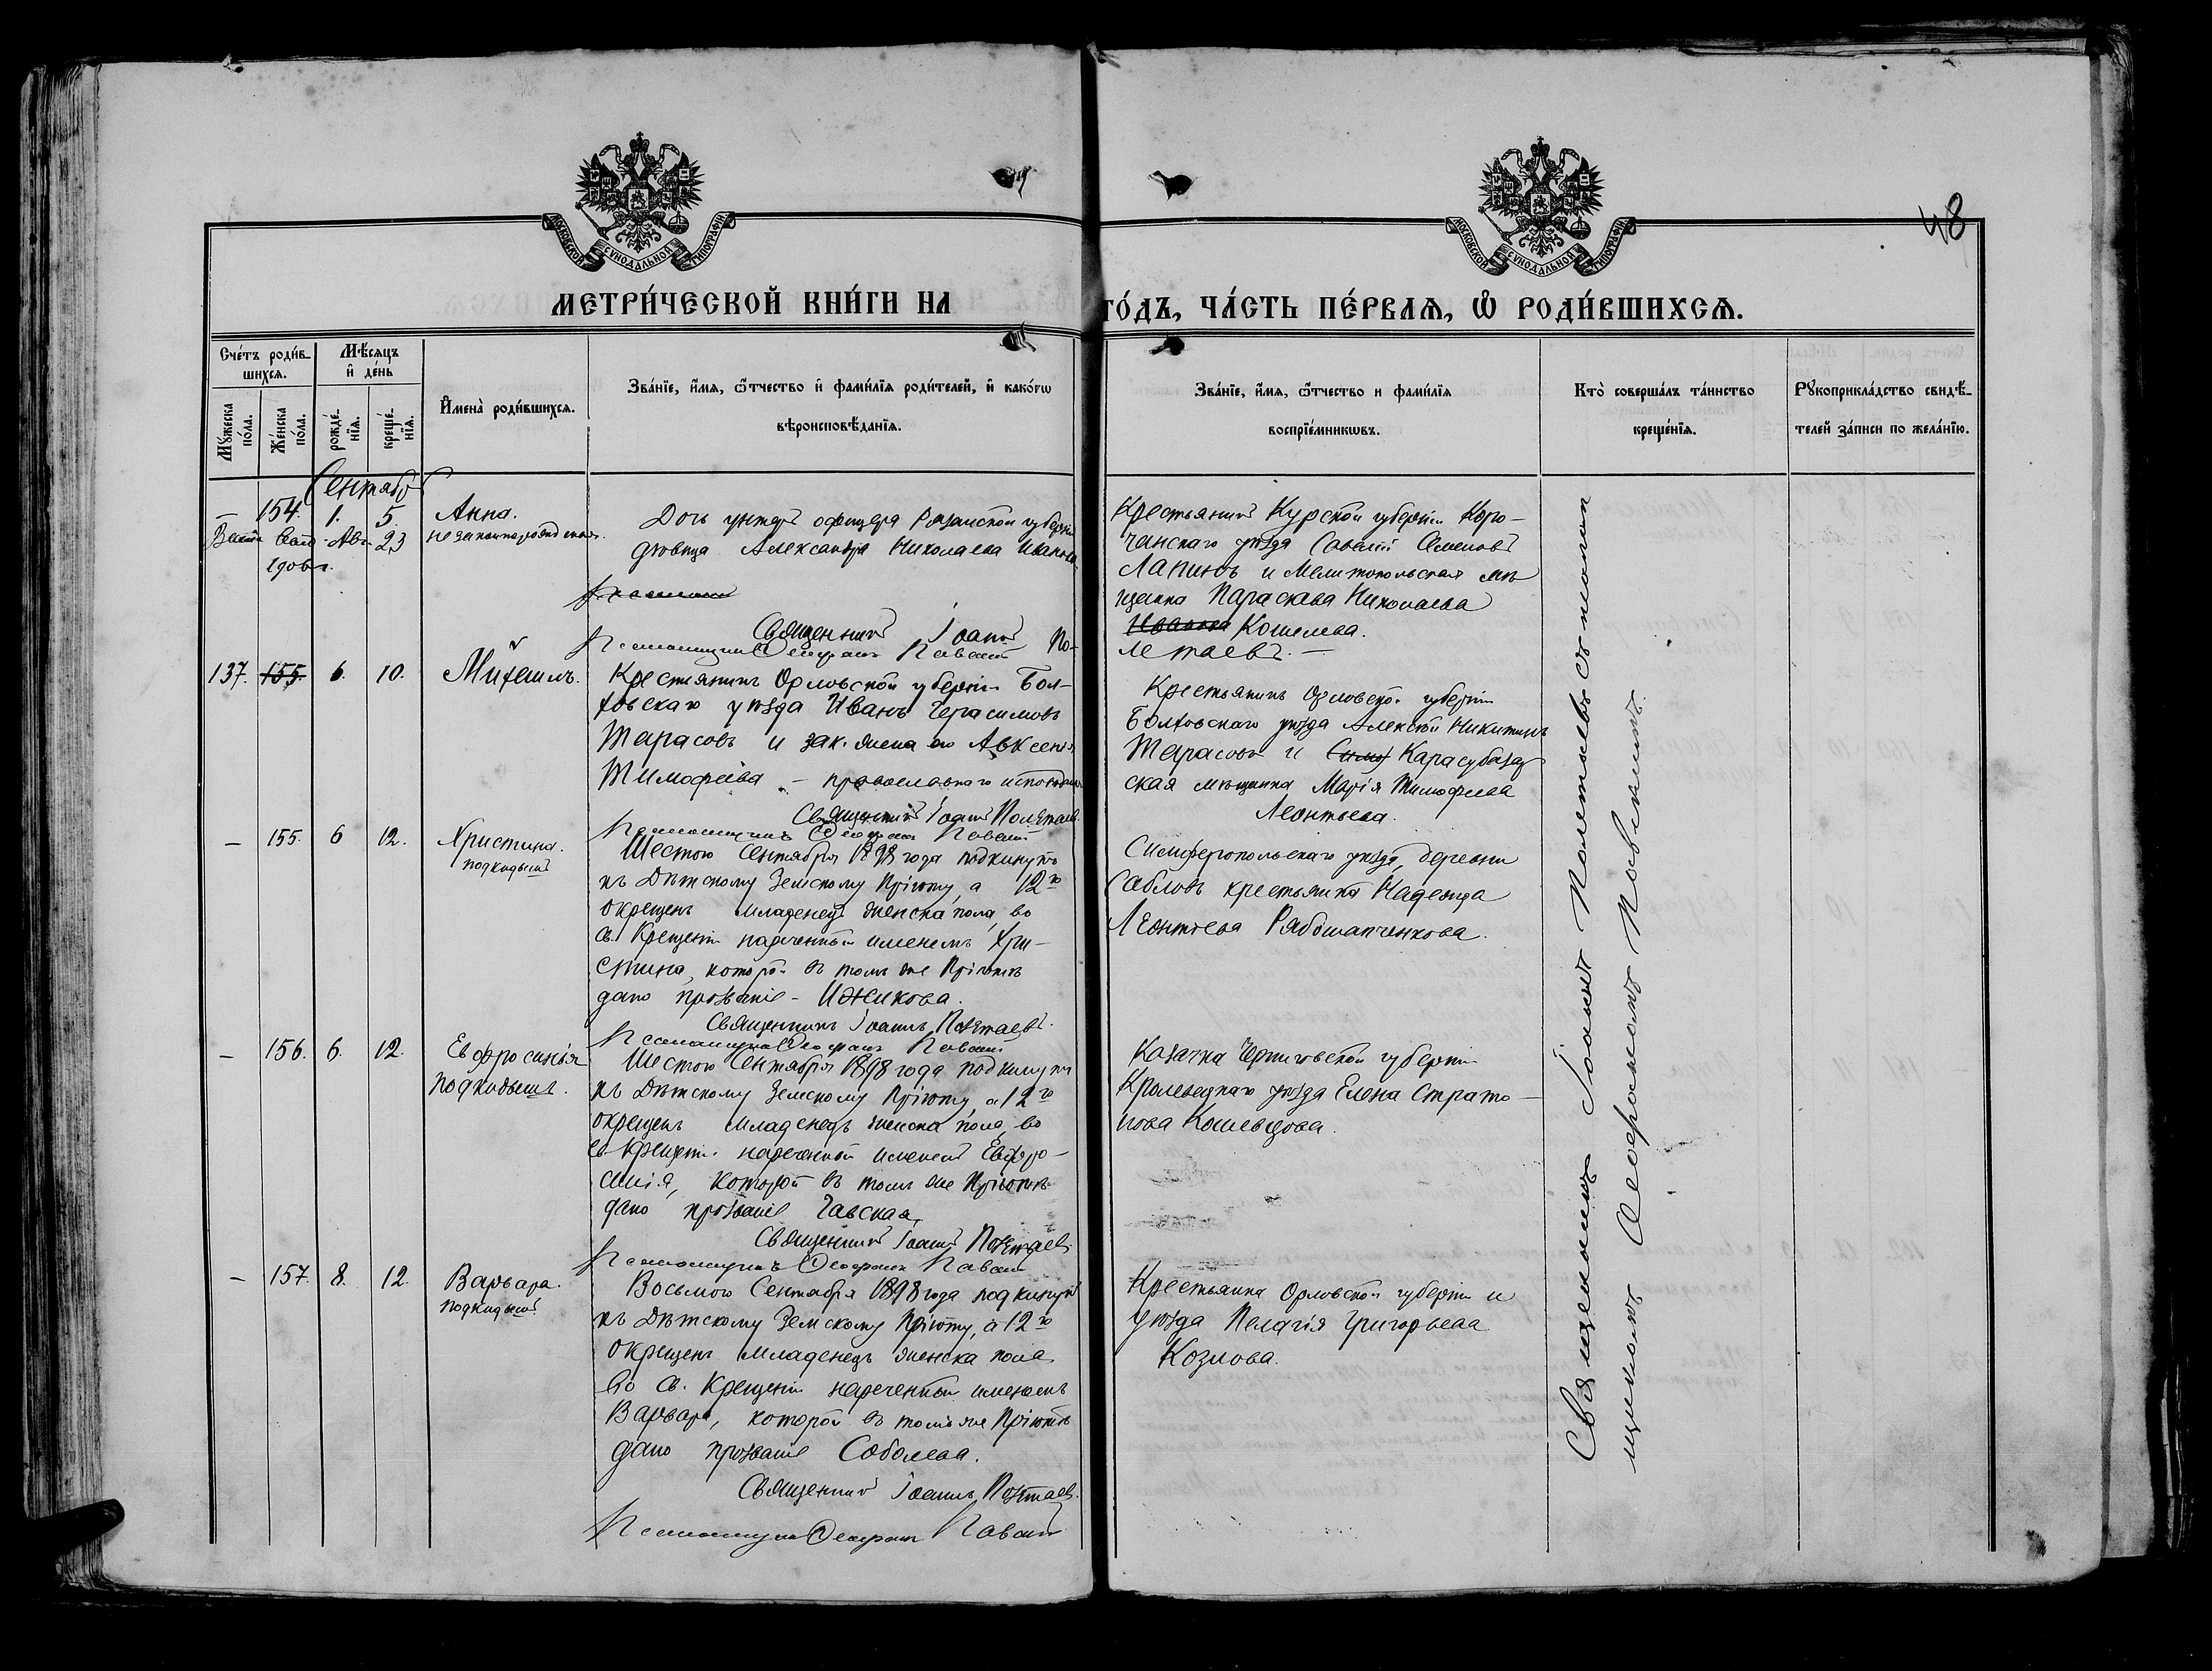 48
МОСКОВСКОЙ СѴНОДАЛЬНОЙ ТИПОГРАФІИ
МОСКОВСКОЙ СѴНОДАЛЬНОЙ ТИПОГРАФІИ
МЕТРИ́ЧЕСКОЙ КНИ́ГИ НА
ГО́ДЪ, ЧА́СТЬ ПЕ́РВАѦ, Ѡ РОДИ́ВШИХСѦ.
Сче́тъ роди́в-
шихсѧ.
Мѣ́сѧцъ
и҆ де́нь
Мꙋ́жеска
по́ла.
Же́нска
по́ла.
рожде́-
нїѧ.
креще́-
нїѧ.
И҆мена̀ роди́вшихсѧ.
Зва́нїе, и҆́мѧ, ѻ҆́тчество и҆ фами́лїѧ роди́телей, и҆ како́гѡ
вѣроисповѣ́данїѧ.
Зва́нїе, и҆́мѧ, ѻ҆́тчество и фами́лїѧ
воспрїе́мникѡвъ.
Кто̀ соверша́лъ та́инство
креще́нїѧ.
Рꙋкоприкла́дство свидѣ́-
телей за́писи по жела́нїю.
Сентябр
— 154. 1. 5. Анна.
незаконнорожденная.
Авг. 23
Дочь унтеръ офицера Рязанской губерніи
дѣвица Александра Николаева Иванова
Священникъ Іоаннъ По-
летаевъ. —
Псаломщикъ Ѳеофанъ
Крестьянинъ Курской губерніи Коро-
чанскаго уѣзда Савелій Семеновъ
Лапинъ и Мелитопольская мѣ-
щанка Параскева Николаева
Иванова Кошелева.
137. 155. 6. 10. Михаилъ.
Крестьянинъ Орловской губерніи Бол-
ховскаго уѣзда Иванъ Герасимовъ
Тарасовъ и зак. жена его Авксенія
Тимофеева — православнаго исповѣданія
Священникъ Іоаннъ Полѣтаевъ
Псаломщикъ Ѳеофанъ
Крестьянинъ Орловской губерніи
Болховскаго уѣзда Алексѣй Никитинъ
Тарасовъ и Карасубазар
ская мѣщанка Марія Тимофеева
Леонтьева.
— 155. 6 12. Христина.
подкидышъ
Шестого Сентября 1898 года подкинутъ
къ Дѣтскому Земскому Пріюту, а 12го
окрещенъ младенецъ женска пола, во
св. Крещеніи нареченный именемъ Хри-
стина, которой въ томъ же Пріютѣ
дано прозваніе — Ижикова.
Священникъ Іоаннъ Полѣтаевъ.
Псаломщикъ Ѳеофанъ
Симферопольскаго уѣзда, деревни
Сабловъ крестьянка Надежда
Леонтьева Рябошапченкова.
— 156. 6. 12. Евфросинья
подкидышъ.
Шестого Сентября 1898 года подкинутъ
къ Дѣтскому Земскому Пріюту, а 12го
окрещенъ младенецъ женска пола, во
св. крещеніи нареченной именемъ Евфро-
синія, которой въ томъ же Пріютѣ
дано прозваніе Гавская,
Священникъ Іоаннъ Полѣтаевъ
Псаломщикъ Ѳеофанъ
Казачка Черниговской губерніи
Кролевецкаго уѣзда Елена Страто-
нова Кошевцова.
— 157. 8. 12. Варвара.
подкидышъ.
Восьмого Сентября 1898 года подкинутъ
къ Дѣтскому Земскому Пріюту, а 12го
окрещенъ младенецъ женска пола
во св. Крещеніи нареченный именемъ
Варвара, которой въ томъ же Пріютѣ
дано прозваніе Соболева.
Священникъ Іоаннъ Полѣтаевъ.
Псаломщикъ Ѳеофанъ
Крестьянка Орловской губерніи и
уѣзда Пелагія Григорьева
Козлова.
Священникъ Іоаннъ Полетаевъ съ псалом
щикомъ Ѳеофаномъ